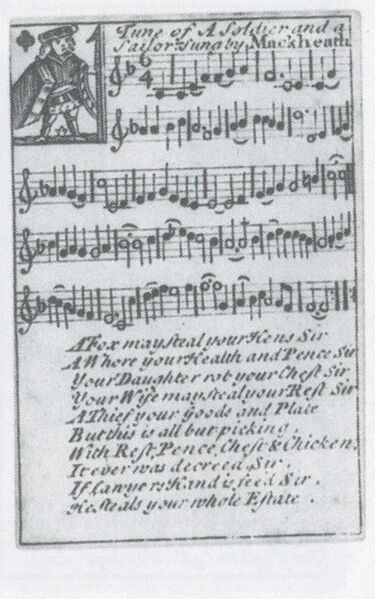 Tune of A Soldier and a
Sailor Sung by Mackheath
6
4
A Fox may steal your Hens Sir
A Whore your Health and Pence Sir
Your Daughter rob your Chest Sir
Your Wife may steal your Rest Sir
A Thief your Goods and Plate
But this is all but picking,
With Rest, Pence, Chest & Chicken,
It ever was decreed Sir,
If Lawyers Hand is feed Sir,
He steals your whole Estate.